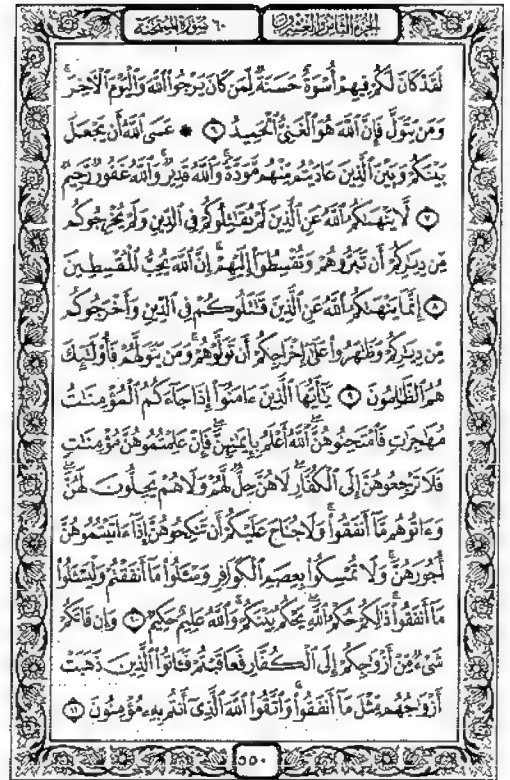 الجزء الثامن والعشرون
٦٠ سورة الممتحنة
لَقَدْ كَانَ لَكُمْ فِيهِمْ أُسْوَةٌ حَسَنَةٌ لِّمَن كَانَ يَرْجُوا۟ ٱللَّهَ وَٱلْيَوْمَ ٱلْـَٔاخِرَ ۚ
وَمَن يَتَوَلَّ فَإِنَّ ٱللَّهَ هُوَ ٱلْغَنِىُّ ٱلْحَمِيدُ ٦ ۞ عَسَى ٱللَّهُ أَن يَجْعَلَ
بَيْنَكُمْ وَبَيْنَ ٱلَّذِينَ عَادَيْتُم مِّنْهُم مَّوَدَّةً ۚ وَٱللَّهُ قَدِيرٌ ۚ وَٱللَّهُ غَفُورٌ رَّحِيمٌ
٧ لَّا يَنْهَىٰكُمُ ٱللَّهُ عَنِ ٱلَّذِينَ لَمْ يُقَـٰتِلُوكُمْ فِى ٱلدِّينِ وَلَمْ يُخْرِجُوكُم
مِّن دِيَـٰرِكُمْ أَن تَبَرُّوهُمْ وَتُقْسِطُوٓا۟ إِلَيْهِمْ ۚ إِنَّ ٱللَّهَ يُحِبُّ ٱلْمُقْسِطِينَ
٨ إِنَّمَا يَنْهَىٰكُمُ ٱللَّهُ عَنِ ٱلَّذِينَ قَـٰتَلُوكُمْ فِى ٱلدِّينِ وَأَخْرَجُوكُم
مِّن دِيَـٰرِكُمْ وَظَـٰهَرُوا۟ عَلَىٰٓ إِخْرَاجِكُمْ أَن تَوَلَّوْهُمْ ۚ وَمَن يَتَوَلَّهُمْ فَأُو۟لَـٰٓئِكَ
هُمُ ٱلظَّـٰلِمُونَ ٩ يَـٰٓأَيُّهَا ٱلَّذِينَ ءَامَنُوٓا۟ إِذَا جَآءَكُمُ ٱلْمُؤْمِنَـٰتُ
مُهَـٰجِرَٰتٍ فَٱمْتَحِنُوهُنَّ ۖ ٱللَّهُ أَعْلَمُ بِإِيمَـٰنِهِنَّ ۖ فَإِنْ عَلِمْتُمُوهُنَّ مُؤْمِنَـٰتٍ
فَلَا تَرْجِعُوهُنَّ إِلَى ٱلْكُفَّارِ ۖ لَا هُنَّ حِلٌّ لَّهُمْ وَلَا هُمْ يَحِلُّونَ لَهُنَّ ۖ
وَءَاتُوهُم مَّآ أَنفَقُوا۟ ۚ وَلَا جُنَاحَ عَلَيْكُمْ أَن تَنكِحُوهُنَّ إِذَآ ءَاتَيْتُمُوهُنَّ
أُجُورَهُنَّ ۚ وَلَا تُمْسِكُوا۟ بِعِصَمِ ٱلْكَوَافِرِ وَسْـَٔلُوا۟ مَآ أَنفَقْتُمْ وَلْيَسْـَٔلُوا۟
مَآ أَنفَقُوا۟ ۚ ذَٰلِكُمْ حُكْمُ ٱللَّهِ ۖ يَحْكُمُ بَيْنَكُمْ ۚ وَٱللَّهُ عَلِيمٌ حَكِيمٌ ١٠ وَإِن فَاتَكُمْ
شَىْءٌ مِّنْ أَزْوَٰجِكُمْ إِلَى ٱلْكُفَّارِ فَعَاقَبْتُمْ فَـَٔاتُوا۟ ٱلَّذِينَ ذَهَبَتْ
أَزْوَٰجُهُم مِّثْلَ مَآ أَنفَقُوا۟ ۚ وَٱتَّقُوا۟ ٱللَّهَ ٱلَّذِىٓ أَنتُم بِهِۦ مُؤْمِنُونَ ١١
٥٥٠